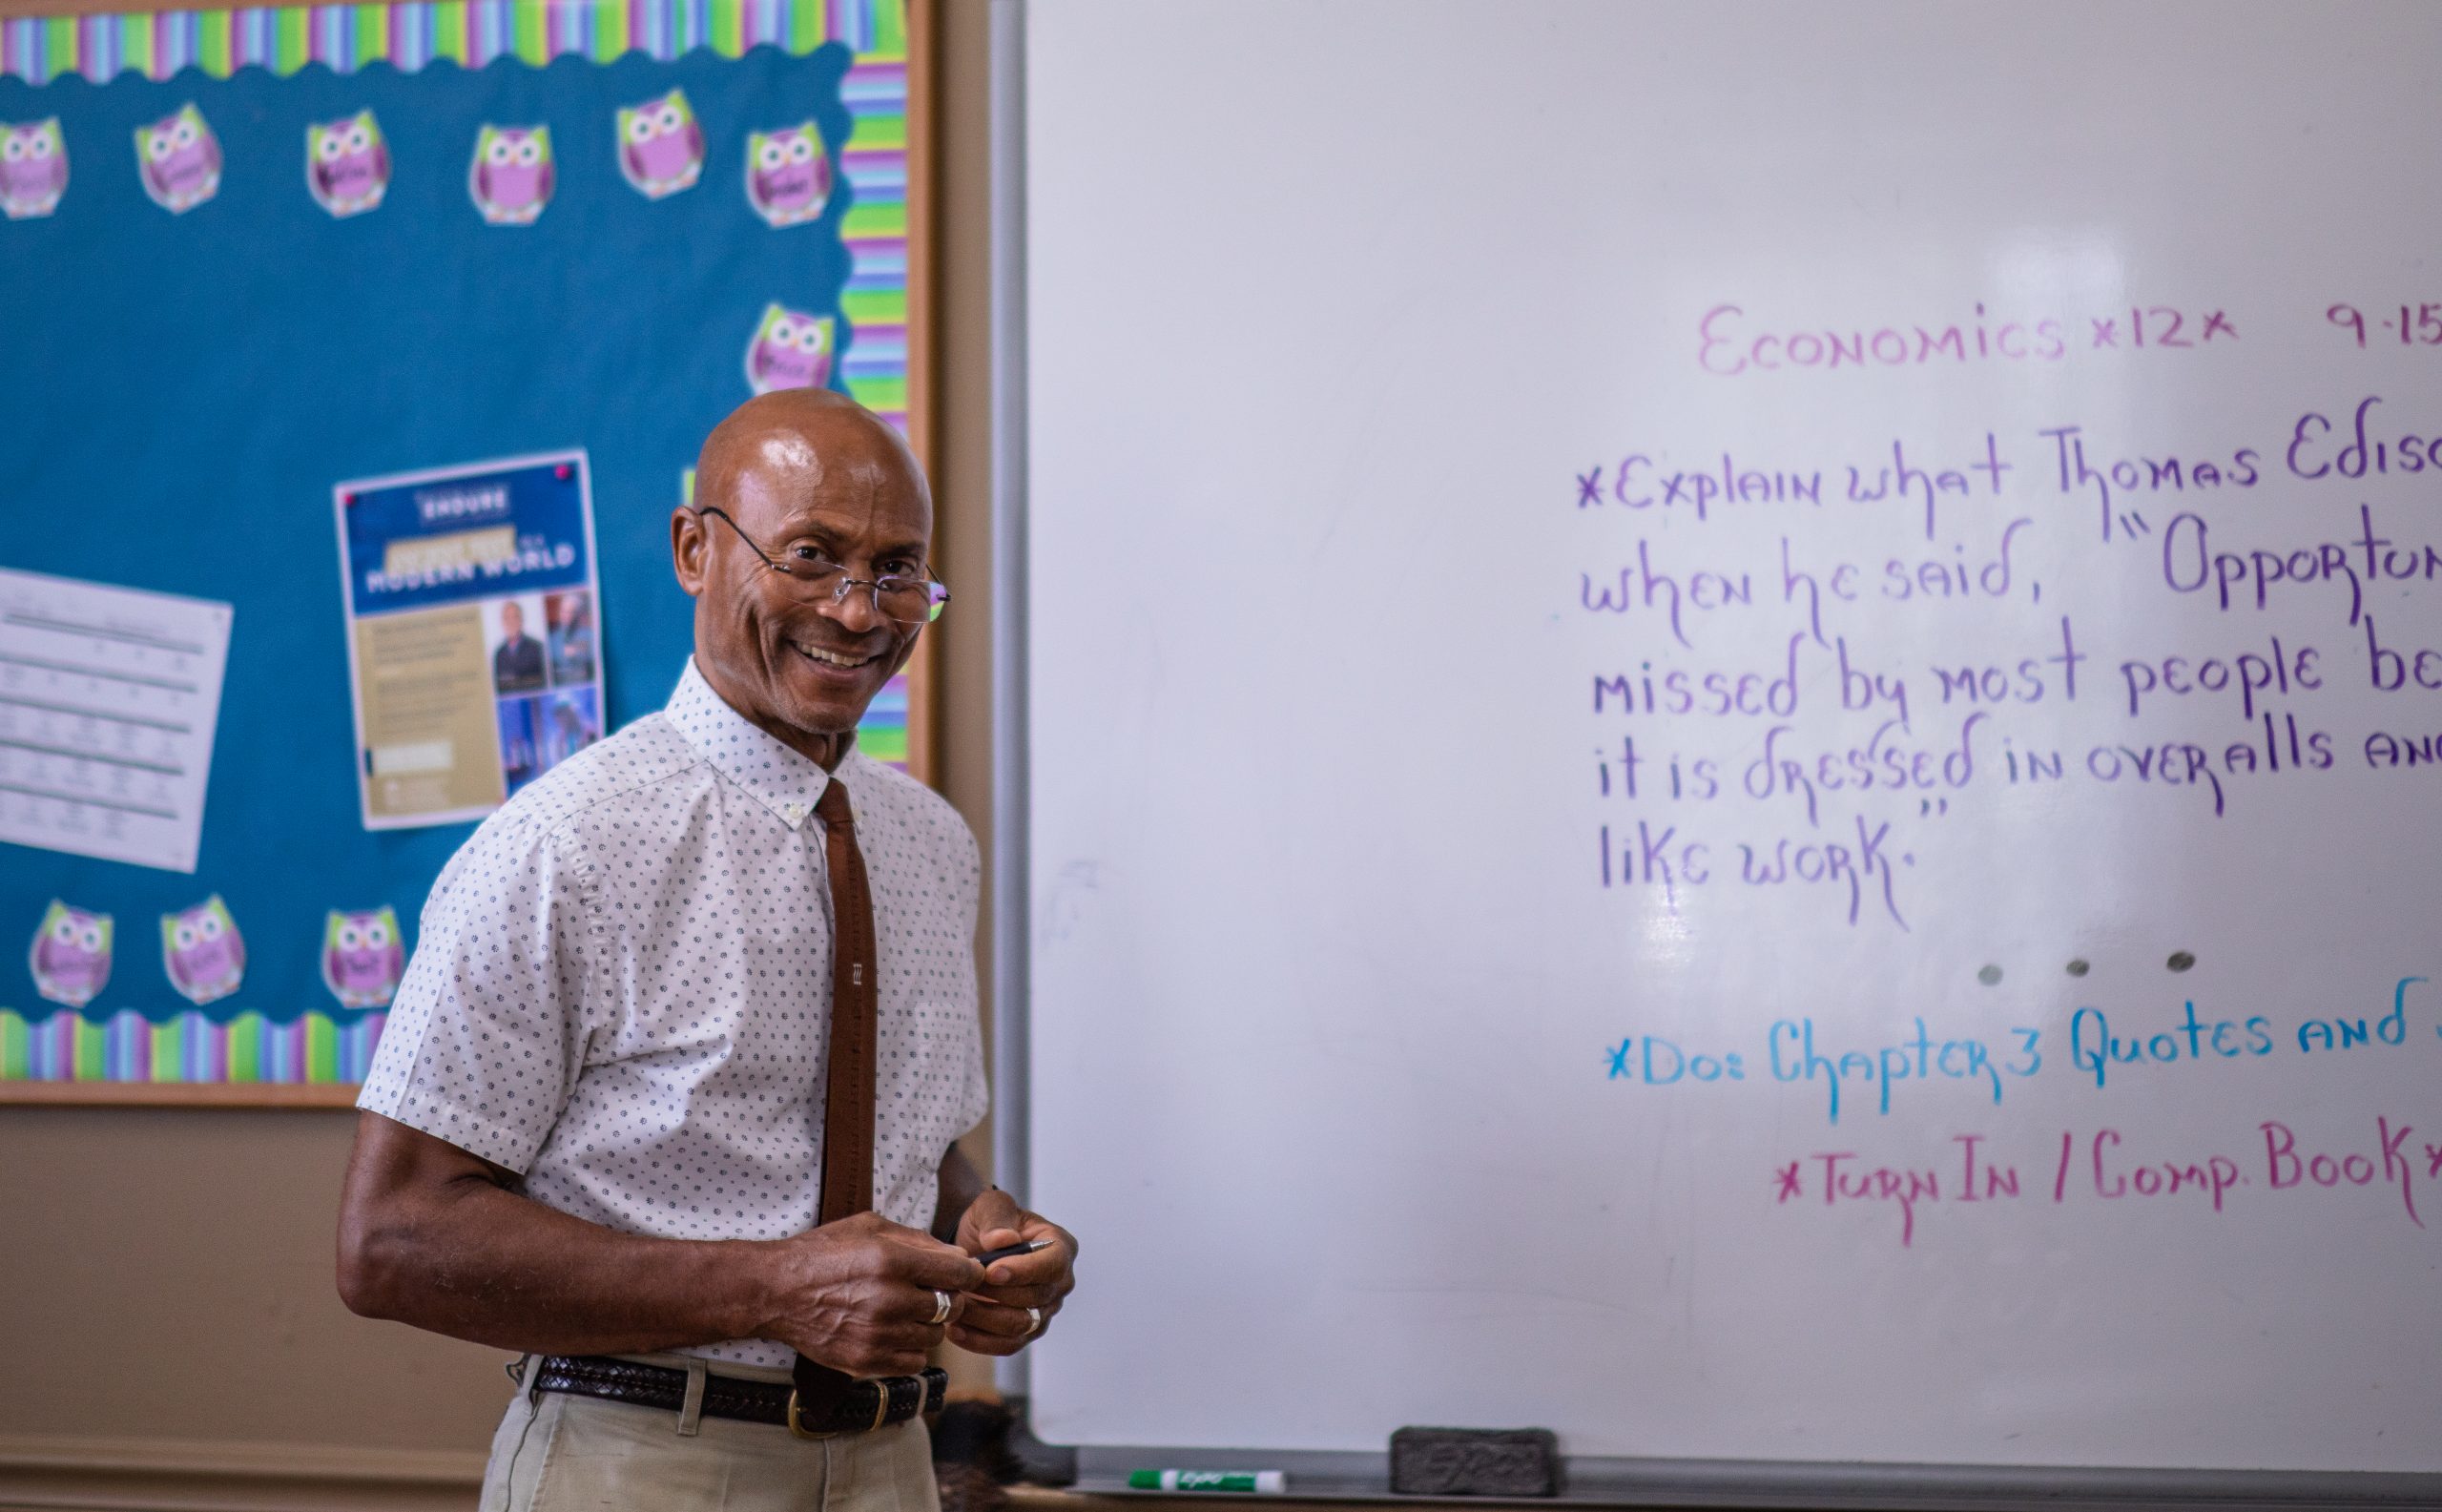 MODERN WORLD
Economics *12* 9-15
*Explain what Thomas Ediso
when he said, "Opportun
missed by most people be
it is dressed in overalls and
like work."
*Do: Chapter 3 Quotes and
*Turn In / Comp. Book*
Expo
Expo